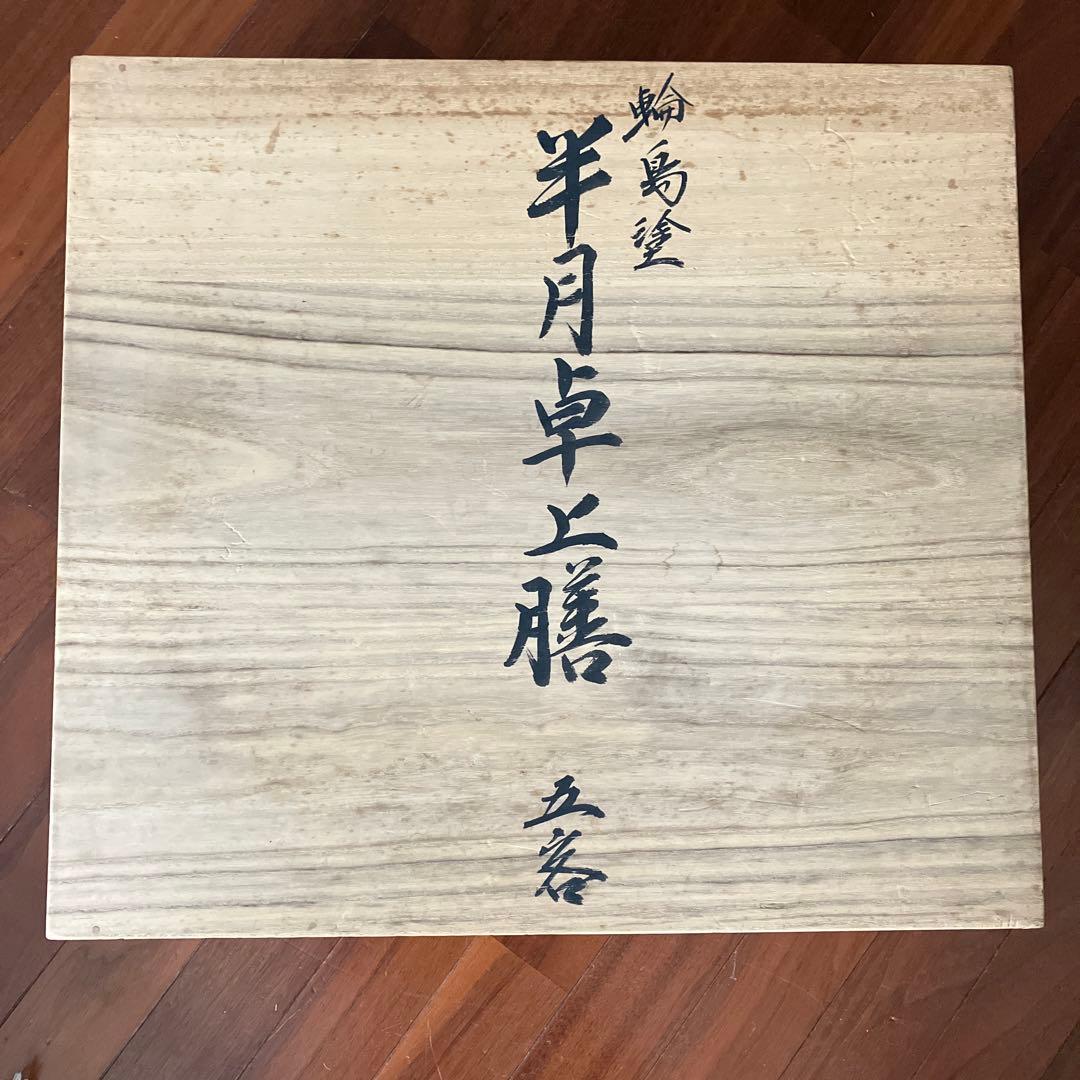 輪島塗
半月卓上膳
五客